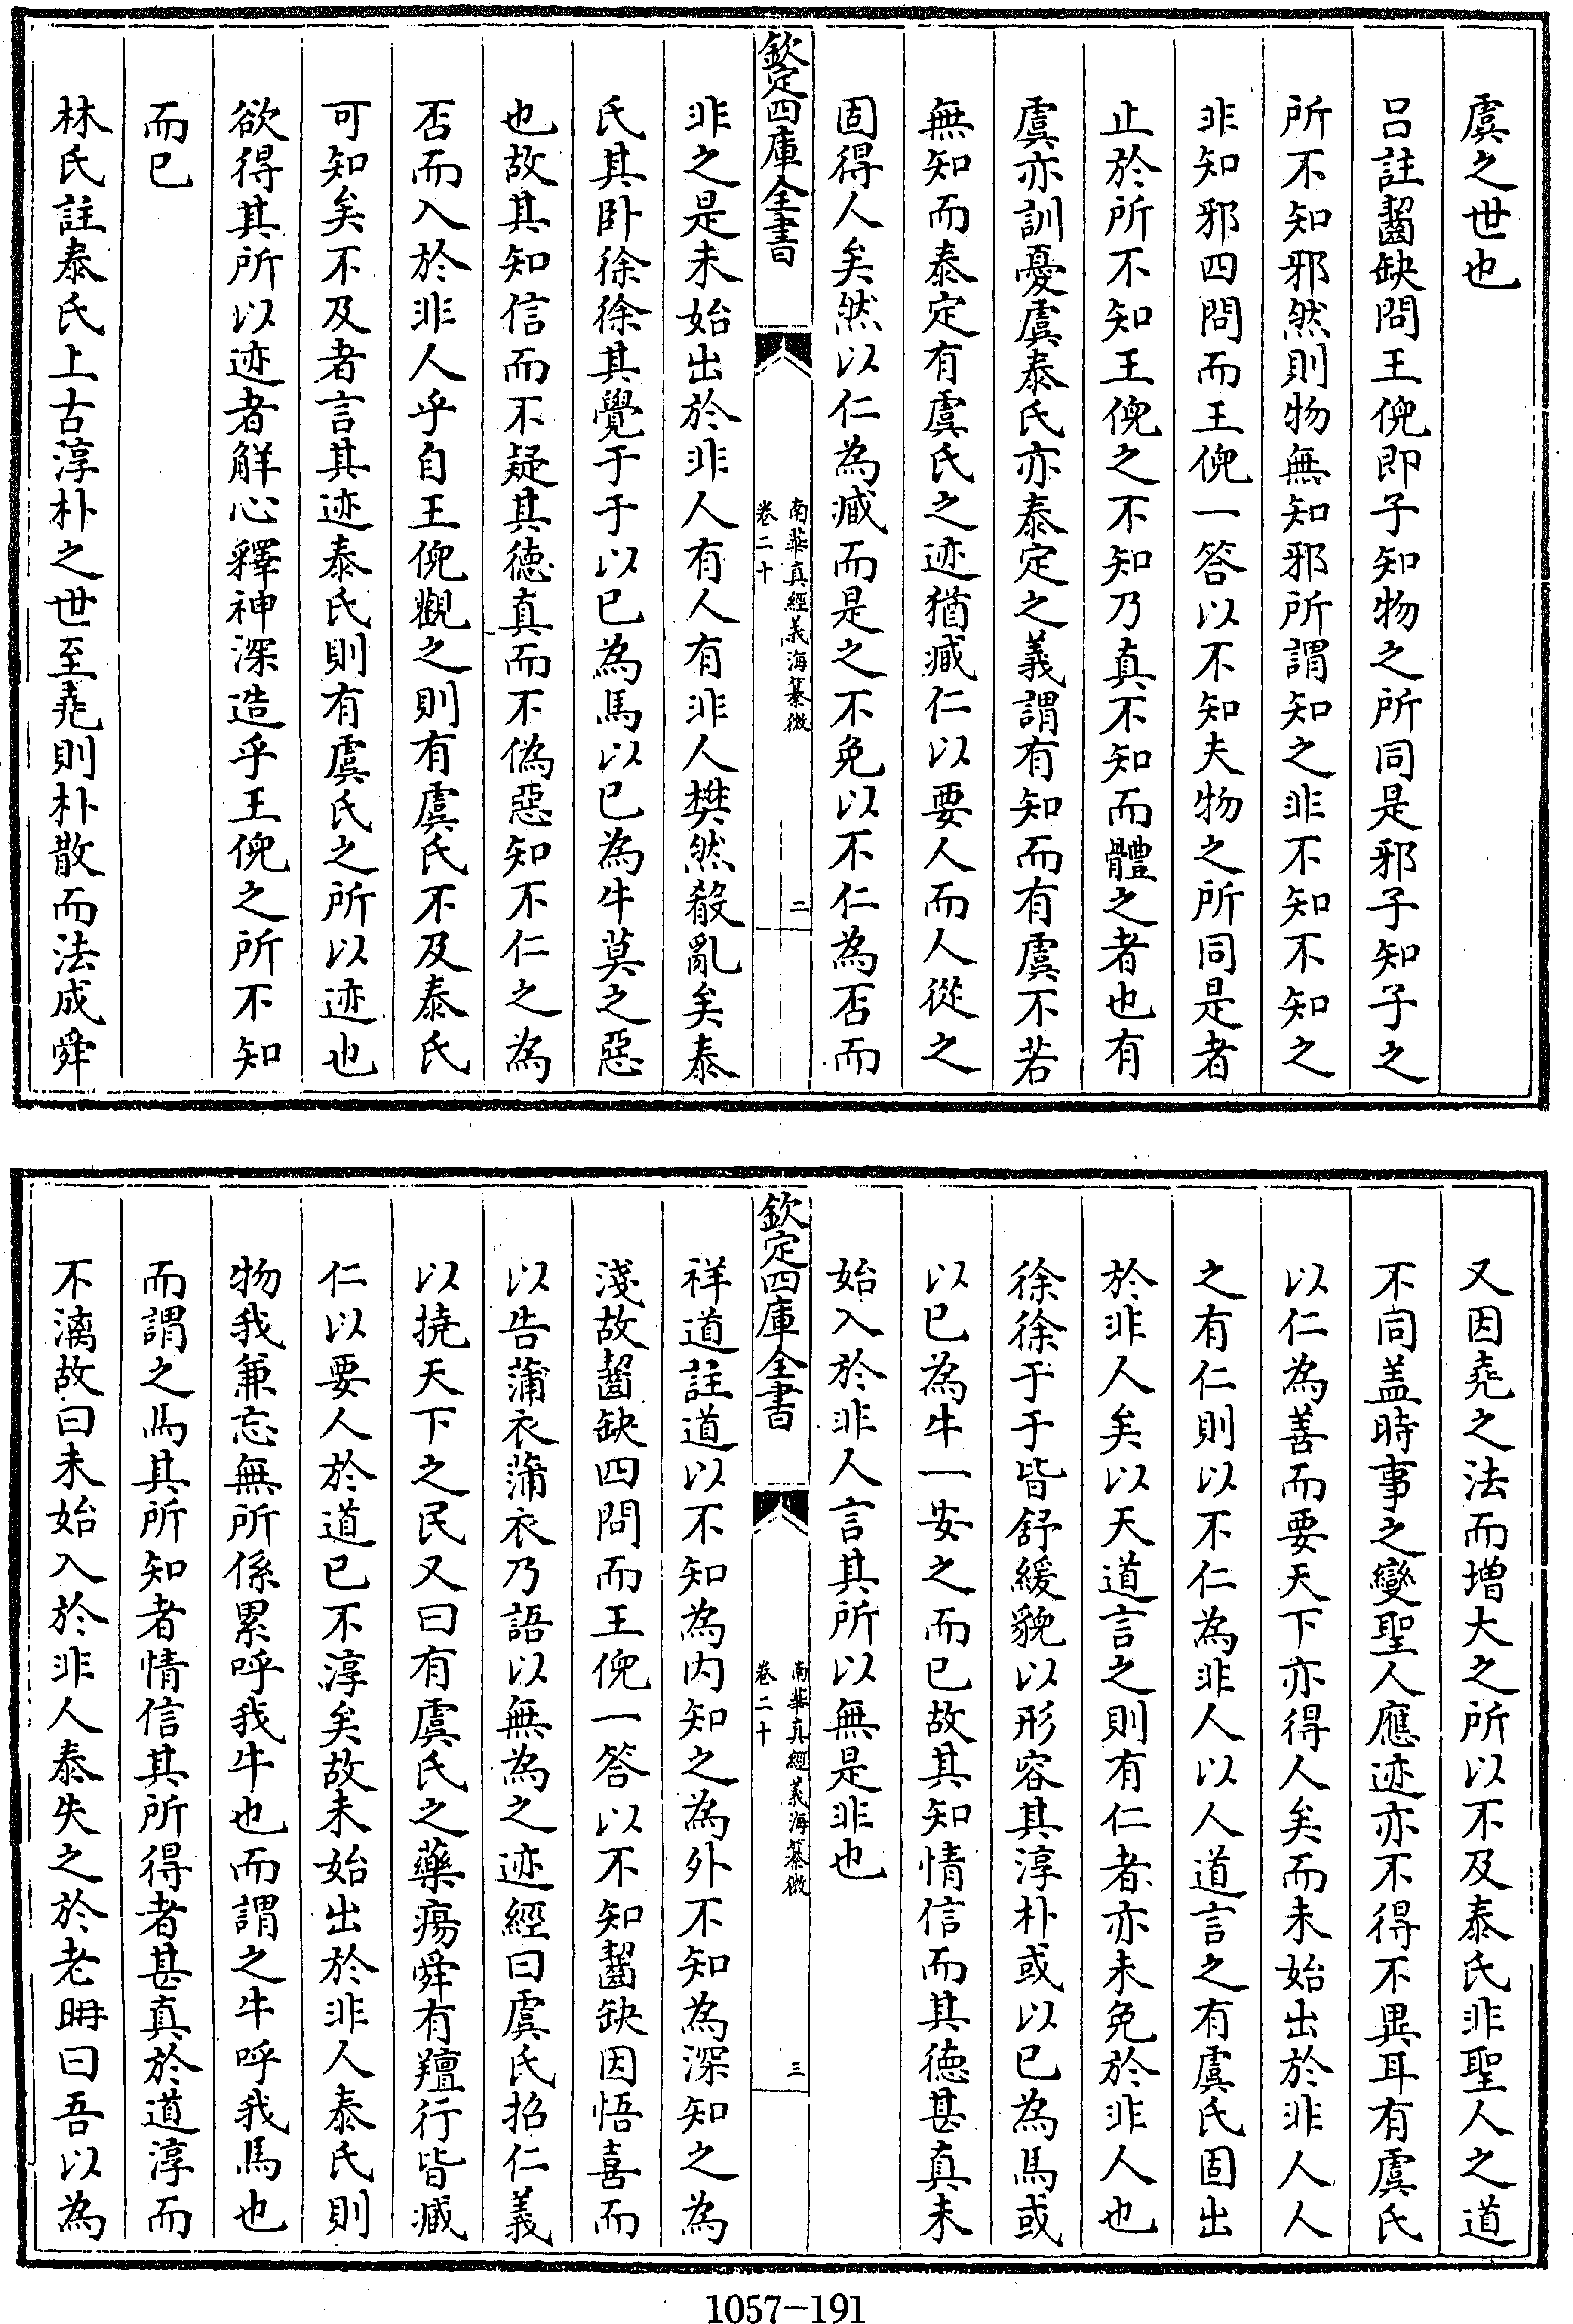 虞之世也
呂註齧缺問王倪即子知物之所同是邪子知子之
所不知邪然則物無知邪所謂知之非不知不知之
非知邪四問而王倪一答以不知夫物之所同是者
止於所不知王倪之不知乃真不知而體之者也有
虞亦訓憂虞泰氏亦泰定之義謂有知而有虞不若
無知而泰定有虞氏之迹猶臧仁以要人而人從之
固得人矣然以仁為臧而是之不免以不仁為否而
欽定四庫全書
南華真經義海纂微
卷二十
二
非之是未始出於非人有人有非人樊然殽亂矣泰
氏其卧徐徐其覺于于以已為馬以已為牛莫之惡
也故其知信而不疑其徳真而不偽惡知不仁之為
否而入於非人乎自王倪觀之則有虞氏不及泰氏
可知矣不及者言其迹泰氏則有虞氏之所以迹也
欲得其所以迹者解心釋神深造乎王倪之所不知
而已
林氏註泰氏上古淳朴之世至堯則朴散而法成舜
又因堯之法而増大之所以不及泰氏非聖人之道
不同盖時事之變聖人應迹亦不得不異耳有虞氏
以仁為善而要天下亦得人矣而未始出於非人人
之有仁則以不仁為非人以人道言之有虞氏固出
於非人矣以天道言之則有仁者亦未免於非人也
徐徐于于皆舒緩貌以形容其淳朴或以已為馬或
以已為牛一安之而已故其知情信而其徳甚真未
始入於非人言其所以無是非也
欽定四庫全書
南華真經義海纂微
卷二十
三
祥道註道以不知為内知之為外不知為深知之為
淺故齧缺四問而王倪一答以不知齧缺因悟喜而
以告蒲衣蒲衣乃語以無為之迹經曰虞氏招仁義
以撓天下之民又曰有虞氏之藥瘍舜有羶行皆臧
仁以要人於道已不淳矣故未始出於非人泰氏則
物我兼忘無所係累呼我牛也而謂之牛呼我馬也
而謂之馬其所知者情信其所得者甚真於道淳而
不漓故曰未始入於非人泰失之於老耼曰吾以為
1057-191